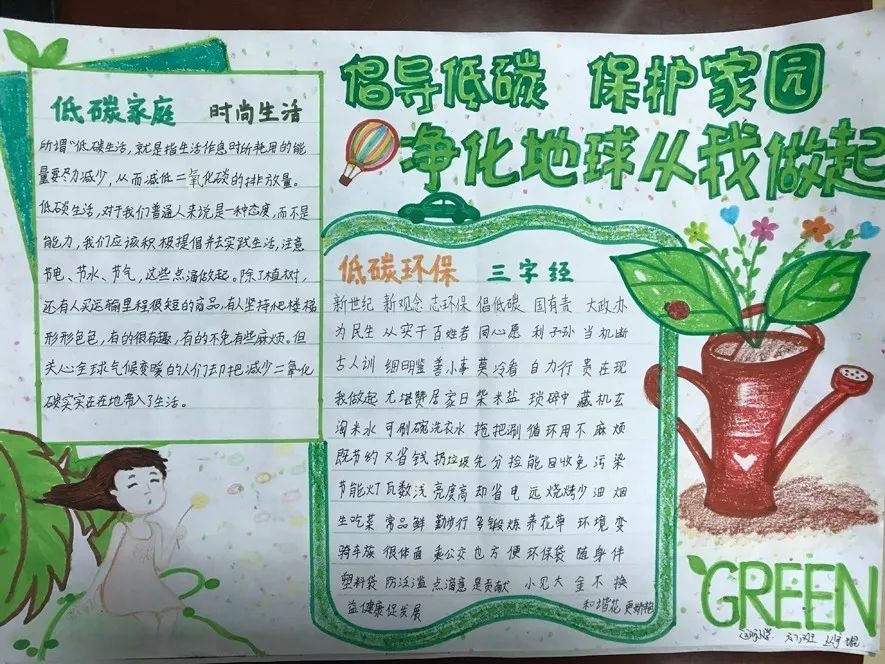 倡导低碳 保护家园
净化地球从我做起
低碳家庭 时尚生活
所谓"低碳生活,就是指生活作息时所耗用的能
量要尽力减少,从而减低二氧化碳的排放量。
低碳生活,对于我们普通人来说是一种态度,而不是
能力,我们应该积极提倡并去实践生活,注意
节电、节水、节气,这些点滴做起。除了植树,
还有人买运输里程很短的商品,有人坚持爬楼梯
形形色色,有的很有趣,有的不免有些麻烦。但
关心全球气候变暖的人们却把减少二氧化
碳实实在在地带入了生活。
低碳环保 三字经
新世纪 新观念 志环保 倡低碳 国有责 大政办
为民生 从实干 百姓者 同心愿 利子孙 当机断
古人训 细明鉴 善小事 莫冷看 自力行 贵在现
我做起 尤堪赞 居家日 柴米盐 琐碎中 藏机玄
淘米水 可刷碗 洗衣水 拖把涮 循环用 不麻烦
既节约 又省钱 扔垃圾 先分捡 能回收 免污染
节能灯 瓦数浅 亮度高 却省电 远烧烤 少油烟
生吃菜 常品鲜 勤步行 多锻炼 养花草 环境变
骑车族 很体面 乘公交 也方便 环保袋 随身伴
塑料袋 防泛滥 点滴意 是贡献 小见大 金不换
益健康 促发展 和谐花 更娇艳
GREEN